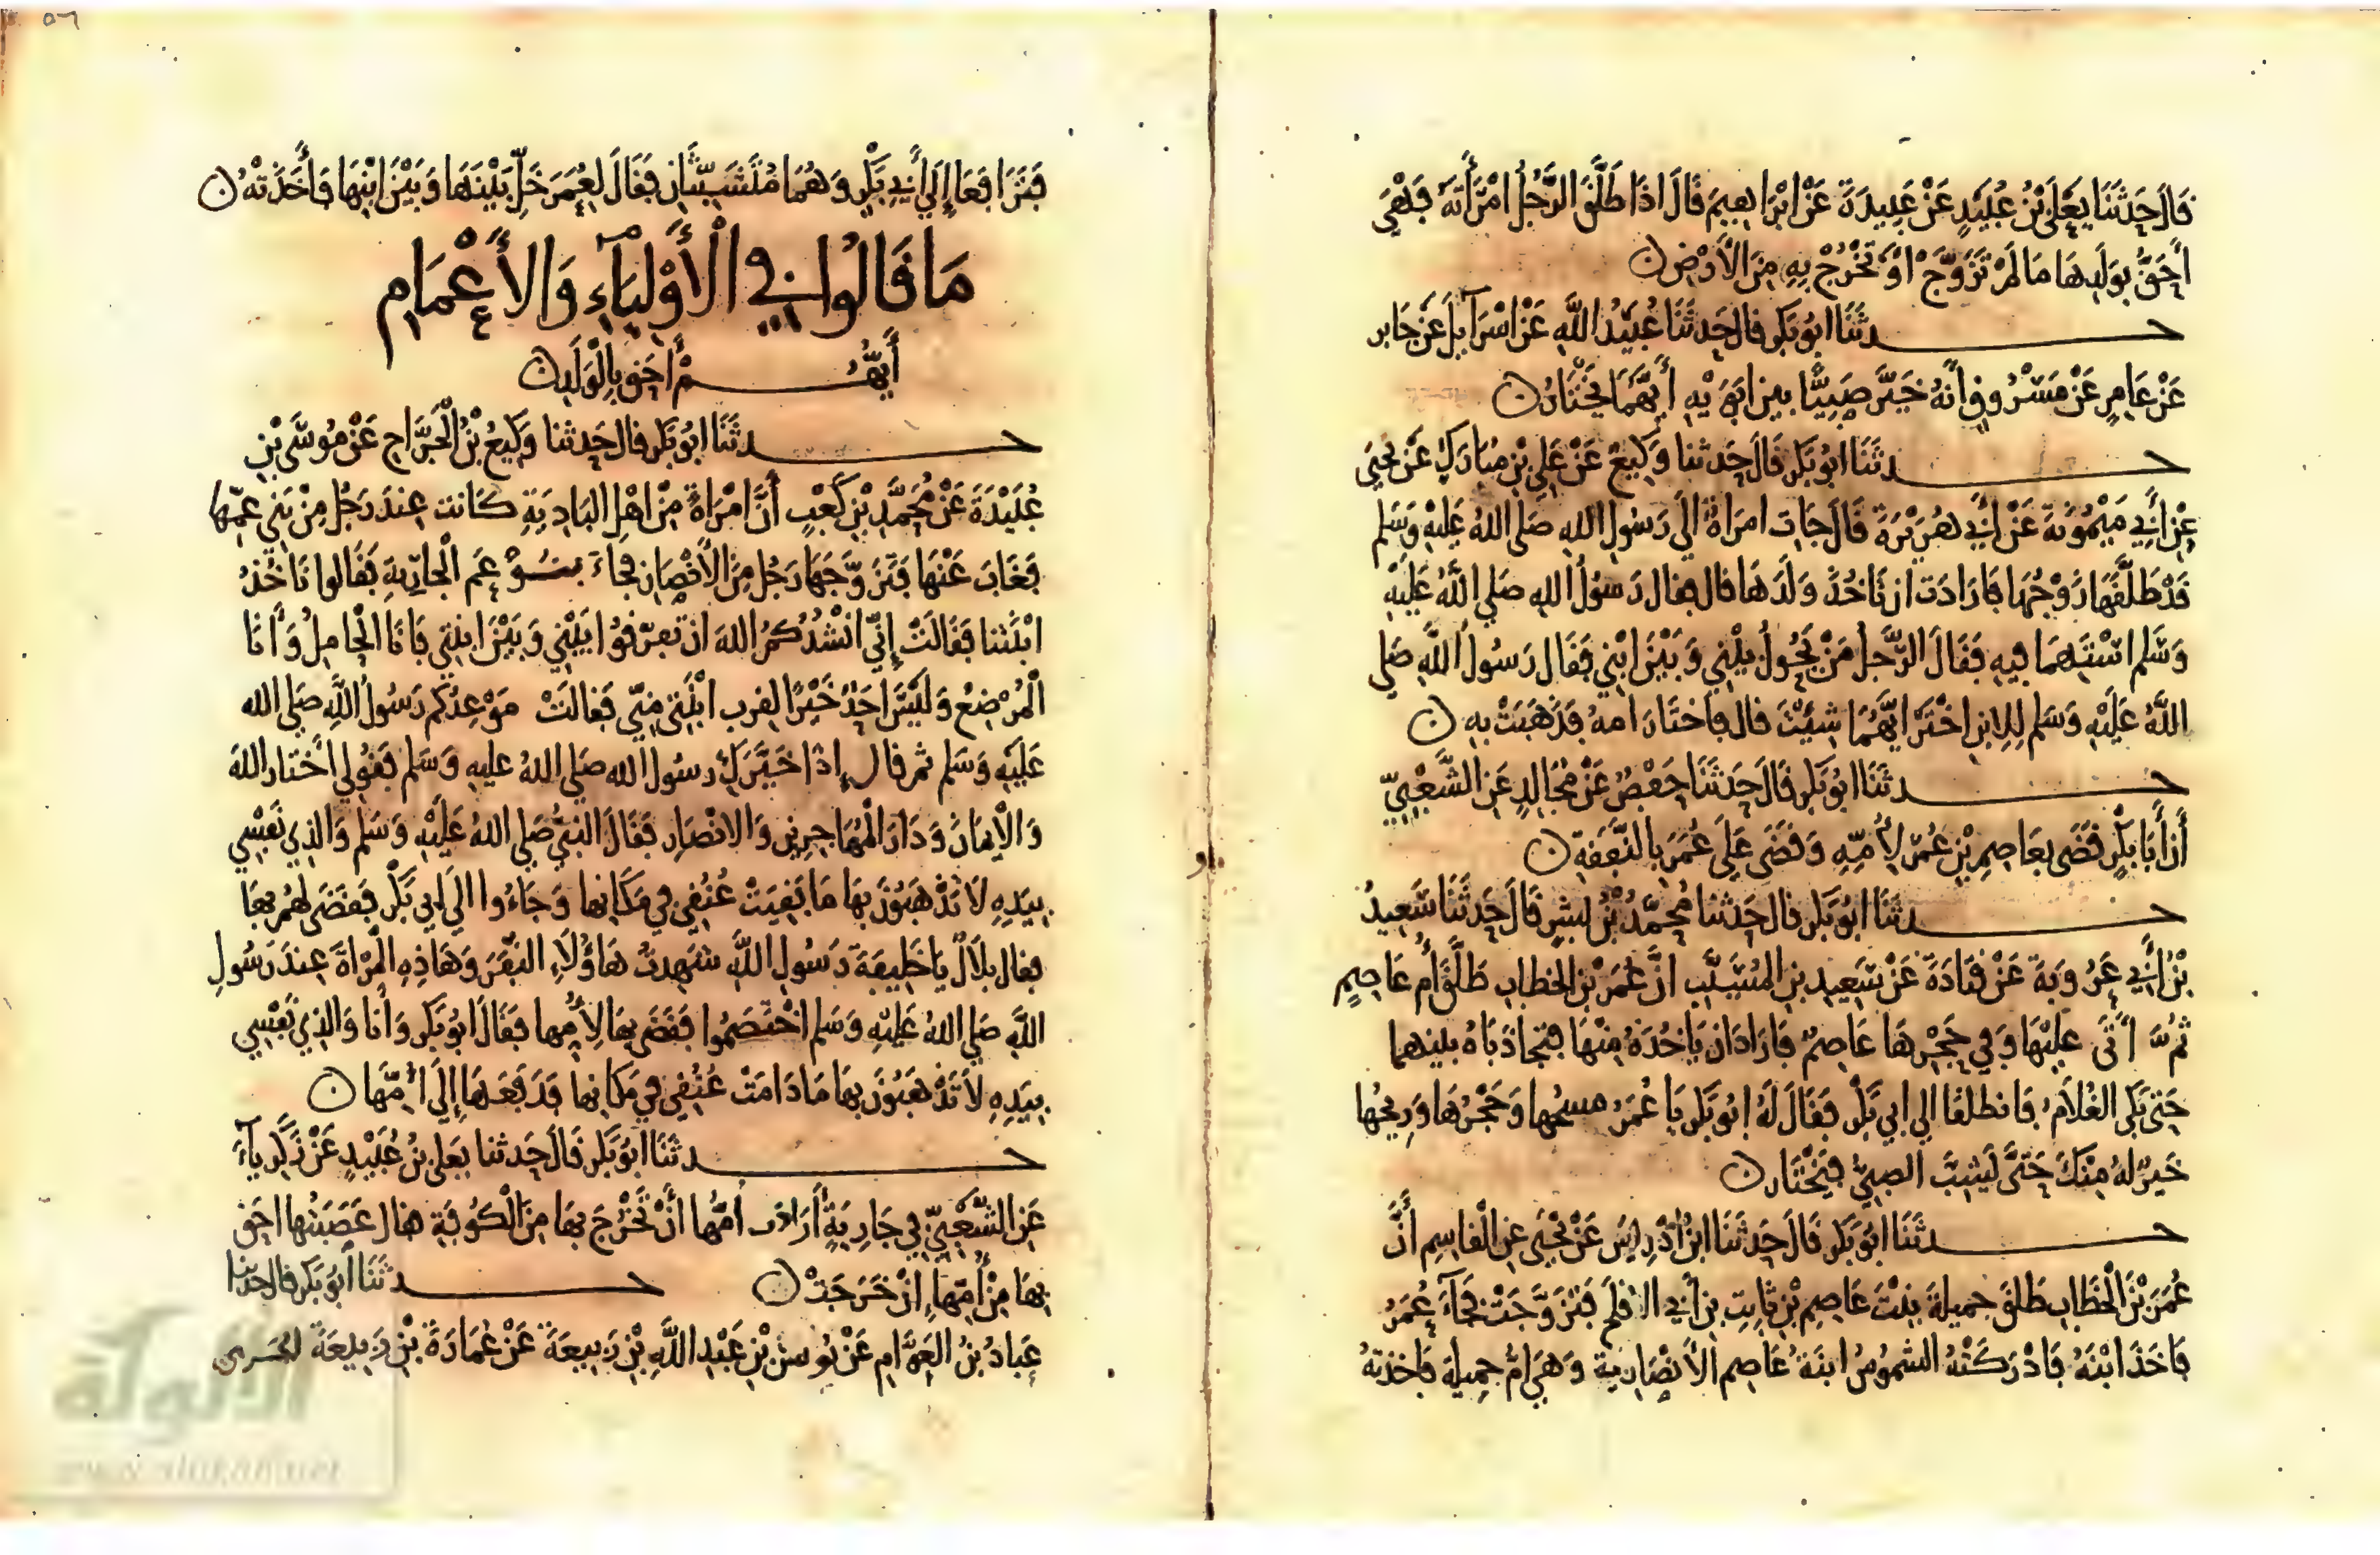 قَالَ حَدَّثَنَا يَعْلَى بْنُ عُبَيْدٍ عَنْ عُبَيْدَةَ عَنْ اِبْرَاهِيمَ قَالَ اذَا طَلَّقَ الرَّجُلُ امْرَأَتَهُ فَهْيَ
أَحَقُّ بِوَلَدِهَا مَا لَمْ تَزَوَّجْ اوْ تَخْرُجْ بِهِ مِنَ الْأَرْضِ ن
حدثَنَا ابُو بَكر قال حَدثَنَا عُبَيْدُ اللَّهِ عَنْ اسْرَآئِيلَ عَنْ جَابِر
عَنْ عَامِرٍ عَنْ مَسْرُوقٍ انَّهُ خَيَّرَ صَبِيًّا بين ابَوَيْهِ أَيَّهُمَا يَخْتَارُ ن
حدثَنَا ابُو بَكر قَالَ حَدثنا وَكِيعٌ عَنْ عَلِي بْنِ مُبَارَكٍ عَنْ يَحْيَى
عَنْ أَبِي مَيْمُونَةَ عَنْ أَبِي هُرَيْرَةَ قَالَ جَات امرَاةٌ الَى رَسُولِ اللهِ صَلى اللهُ عَلَيْهِ وَسَلم
قَدْ طَلَّقَهَا زَوْجُهَا فَارَادَت ان تَاخُذَ وَلَدَهَا قال فقال رَسُولُ اللهِ صَلى اللَّهُ عَلَيْهِ
وَسَلَّم اسْتَهِمَا فِيهِ فَقَالَ الرَّجل مَنْ يَحُولُ بَيْنِي وَبَيْنَ ابْنِي فَقَال رَسُولُ اللَّهِ صَلى
اللَّهُ عَلَيْهِ وَسَلم لِلابنِ اخْتَرْ ايَّهُمَا شِئْتَ قال فَاختَارَ امهُ فَذَهَبَتْ بِهِ ن
حدثَنَا ابُو بَكر قَالَ حَدَثَنَا حَفْصٌ عَنْ مُجَالِدٍ عَنِ الشَّعْبِيِّ
أَنَّ أَبَا بَكْرٍ قَضَى بِعَاصِمِ بْنِ عُمَرَ لِأُمِّهِ وَقَضَى عَلَى عُمَرَ بِالنَّفَقَةِ ن
حدثَنَا ابُو بَكر قال حَدثنَا مُحَمَّدُ بْنُ بِشرٍ قَالَ حَدَثَنَا سَعِيدُ
بْنُ أَبِي عَرُوبَةَ عَنْ قَتَادَةَ عَنْ سَعِيدِ بنِ المُسَيَّبِ انَّ عُمَرَ بْنَ الخطابِ طَلَّقَ أُم عَاصِمٍ
ثُمَّ أَتَى عليْهَا وَفِي حَجْرِهَا عَاصِمٌ فَارَادَ ان يَاخُذَهُ مِنْهَا فَتجَاذَبَاهُ بَيْنَهما
حَتى بَكَى الغُلَامُ فَانطلقَا الى ابِي بَكْرٍ فَقَالَ لَهُ ابُو بَكر يَا عُمَرُ مسحُها وَحَجْرُهَا وَرِيحُها
خَيرٌ لهُ مِنْكَ حَتَّى يَشِبَّ الصبِيُّ فَيَخْتَار ن
حدثَنَا ابُو بَكر قَالَ حَدثَنَا ابنُ اُدْرِيسَ عَنْ يَحْيَى عنِ الْقاسِمِ أَنَّ
عُمَرَ بْنَ الْخَطَّابِ طَلقَ جميلةَ بِنْتَ عَاصِمِ بْنِ ثَابِتِ بنِ أَبِي الافلَح فَتزَوَّجَتْ فَجَآءَ عُمَرُ
فَاخَذَ ابْنَهُ فَادْرَكَتْهُ الشموسُ ابنَةُ عَاصِم الأنصَارِيَة وَهيَ امُّ جميلَة فَاخَذتهُ
فَتَرَافَعَا إِلَى أَبِي بَكْرٍ وَهُمَا مُتَشَبِّثَانِ فَقَالَ لِعُمَرَ خَلِّ بَيْنَهَا وَبَيْنَ ابْنِهَا فَأَخَذَتْهُ ن
مَا قَالُوا فِي الْأَوْلِيَآءِ وَالأَعْمَامِ
أَيُّهُمْ أَحَق بِالْوَلَدِ ن
حدثَنَا ابُو بَكر قال حَدثنا وَكِيعُ بْنُ الْجَرَّاحِ عَنْ مُوسَى بْنِ
عُبَيْدَةَ عَنْ مُحَمَّدِ بْنِ كَعْبٍ أَنَّ امْرَاةً مِنْ اهْلِ البَادِيَةِ كَانت عِندَ رَجُلٍ مِنْ بَنِي عمِّها
فَغَابَ عَنْهَا فَتَزَوَّجَهَا رَجُل مِنَ الأَنْصَارِ فجاءَ بنو عَم الْجَارِيةِ فَقَالوا نَاخُذُ
ابْنَتنَا فَقَالَتْ إِنِّي انْشُدُكمُ اللهَ ان تفرّقُوا بَيْنِي وَبَيْنَ ابنتِي فَانَا الْحامِلُ وَأَنَا
الْمُرْضِعُ وَلَيْسَ احَدٌ خَيْرًا لقرب ابْنَتِي مِنِّي فَقالَتْ مَوْعِدُكم رَسُولُ اللَّهِ صَلى الله
عَلَيْهِ وَسَلم ثم قال إِذَا خَيَّرَكِ رسُول الله صَلى اللهُ عليهِ وَسَلم فَقُولِي أَخْتَارُ اللهَ
وَالْإِيمَانَ وَدَارَ الْمُهَاجِرِينَ وَالانْصَارِ فَقَالَ النبيُّ صَلى اللهُ عَلَيْهِ وَسَلم وَالذِي نَفْسِي
بِيَدِهِ لَا تَذْهَبُونَ بِهَا مَا بَقِيَتْ عُنُقِي فِي مَكَانِهَا وَجَاءُوا الَى ابِي بَكْرٍ فَقَضَى لَهُمْ بِهَا
فقال بِلَالٌ يَا خَلِيفَةَ رَسُولِ اللَّهِ شَهِدتُ هَاؤُلَاءِ النفَرَ وَهَاذِهِ الْمَرْاةَ عِنْدَ رَسُولِ
اللَّهِ صَلى اللهُ عَلَيْهِ وَسَلم اخْتَصَمُوا فَقَضَى بِهَا لِأُمِّها فَقَالَ ابُو بَكر وَأَنَا وَالذِي نَفْسِي
بِيَدِهِ لَا تَذْهَبُونَ بِهَا مَا دَامَتْ عُنُقِي فِي مَكَانِهَا فَدَفَعَهَا إِلَى أُمِّهَا ن
حدثَنَا ابُو بَكر قَالَ حَدثنا يَعْلى بْنُ عُبَيْدٍ عَنْ زَكَرِيَآءَ
عَنِ الشَّعْبِيِّ فِي جَارِيَةٍ أَرَادَت أُمُّها أَنْ تَخْرُجَ بِهَا مِنَ الْكُوفَةِ فقال عَصَبَتُها احَق
بِهَا مِنْ أُمِّهَا إِنْ خَرَجَتْ ن حدثَنَا أَبُو بَكر قال حَدثنا
عَبادُ بنُ العَوَّامِ عَنْ يُونسَ بْنِ عَبْدِ اللَّهِ بْنِ رَبِيعَةَ عَنْ عُمَارَةَ بْنِ رَبِيعَةَ الجَرمي
الألوكة
www.alukah.net